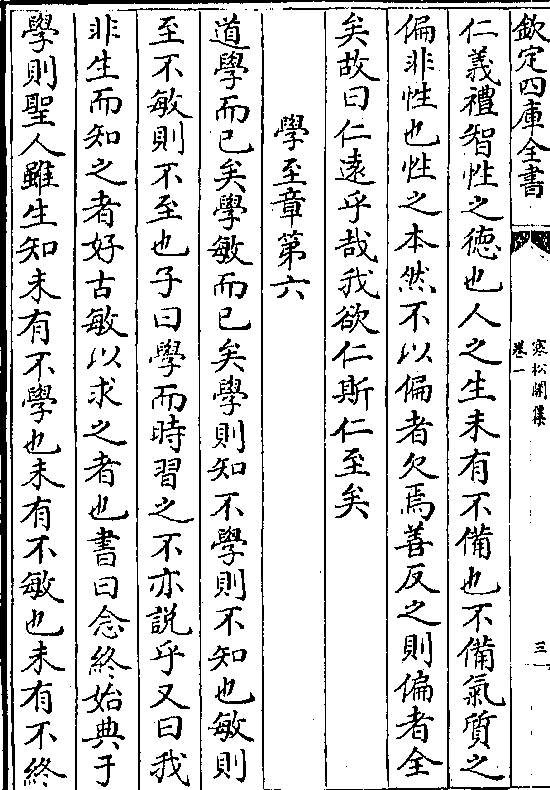 欽定四庫全書
寒松閣集
卷一
三
仁義禮智性之德也人之生未有不備也不備氣質之
偏非性也性之本然不以偏者欠焉善反之則偏者全
矣故曰仁遠乎哉我欲仁斯仁至矣
學至章第六
道學而已矣學敏而已矣學則知不學則不知也敏則
至不敏則不至也子曰學而時習之不亦説乎又曰我
非生而知之者好古敏以求之者也書曰念終始典于
學則聖人雖生知未有不學也未有不敏也未有不終